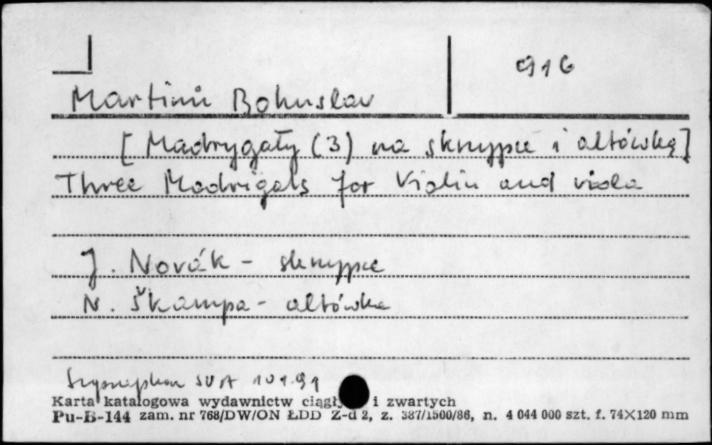 916
Martinů Bohuslav
[Madrygały (3) na skrzypce i altówkę]
Three Madrigals for Violin and viola
J. Novák - skrzypce
N. Škampa - altówka
Supraphon SUA 101.99
Karta katalogowa wydawnictw ciągły i zwartych
Pu-B-144 zam. nr 768/DW/ON ŁDD Z-d 2, z. 387/1500/86, n. 4 044 000 szt. f. 74X120 mm